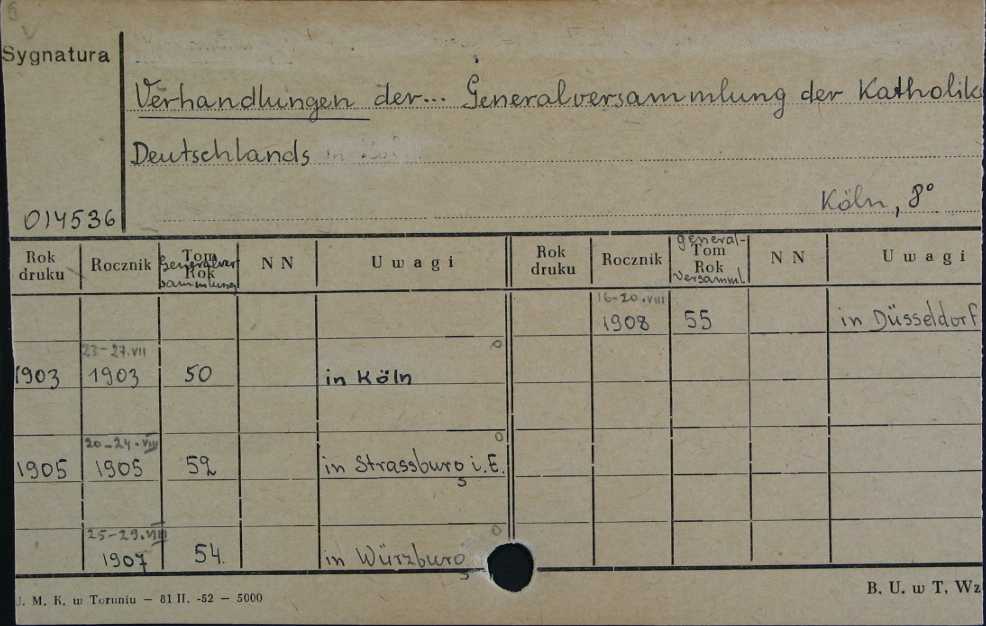 Sygnatura
Verhandlungen der... Generalversammlung der Katholik
Deutschlands
Köln, 8°
014536
Rok druku Rocznik Tom Rok Generalversammlung N N Uwagi Rok druku Rocznik general- Tom Rok versamml. N N Uwagi
16-20.VIII
1908 55 in Düsseldorf
23-27.VII
1903 1903 50 in Köln
20-24.VIII
1905 1905 52 in Strassburg i.E.
25-29.VIII
1907 54. in Würzburg
U. M. K. w Toruniu — 81 II. -52 — 5000
B. U. w T. Wz